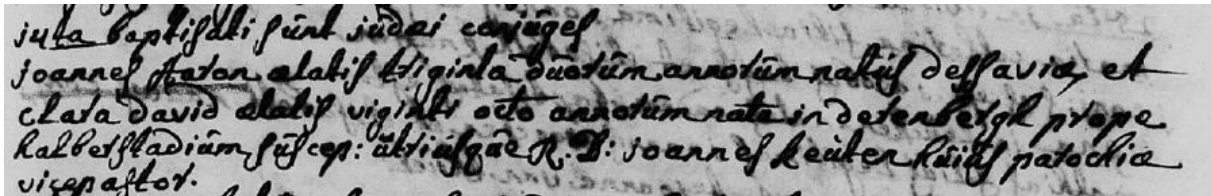 juta baptisati sunt judæi conjuges
joannes Aaron ætatis triginta duorum annorum natus dessaviæ, et
clara david ætatis viginti octo annorum nata in derenbergh prope
halberstadium, suscep: utriusque R. D: joannes Keuten huius parochiæ
vicepastor.